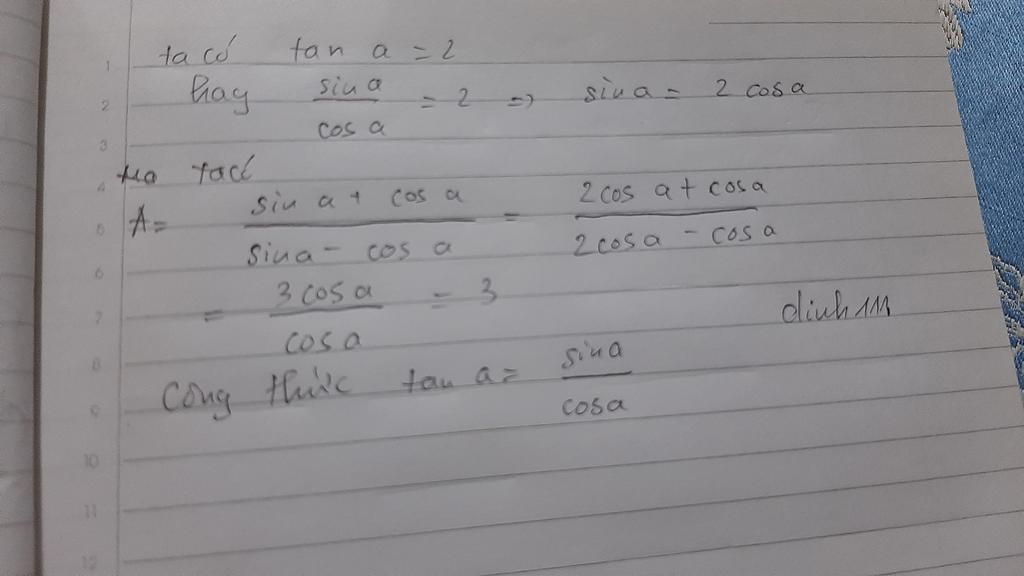 ta có tan a = 2
hay sin a / cos a = 2 => sin a = 2 cos a
ta có
A = sin a + cos a / sin a - cos a = 2 cos a + cos a / 2 cos a - cos a
= 3 cos a / cos a = 3
dinh 111
Công thức tan a = sin a / cos a
1
2
3
4
5
6
7
8
9
10
11
12